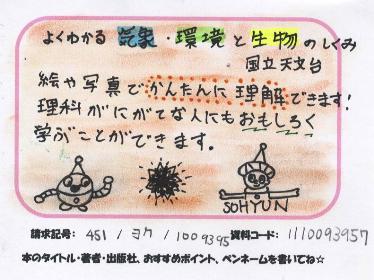 よくわかる 気象・環境と生物のしくみ
国立天文台
絵や写真でかんたんに理解できます!
理科がにがてな人にもおもしろく
学ぶことができます。
SOHYUN
請求記号: 451 / ヨク / 1009395 資料コード: 1110093957
本のタイトル・著者・出版社、おすすめポイント、ペンネームを書いてね☆